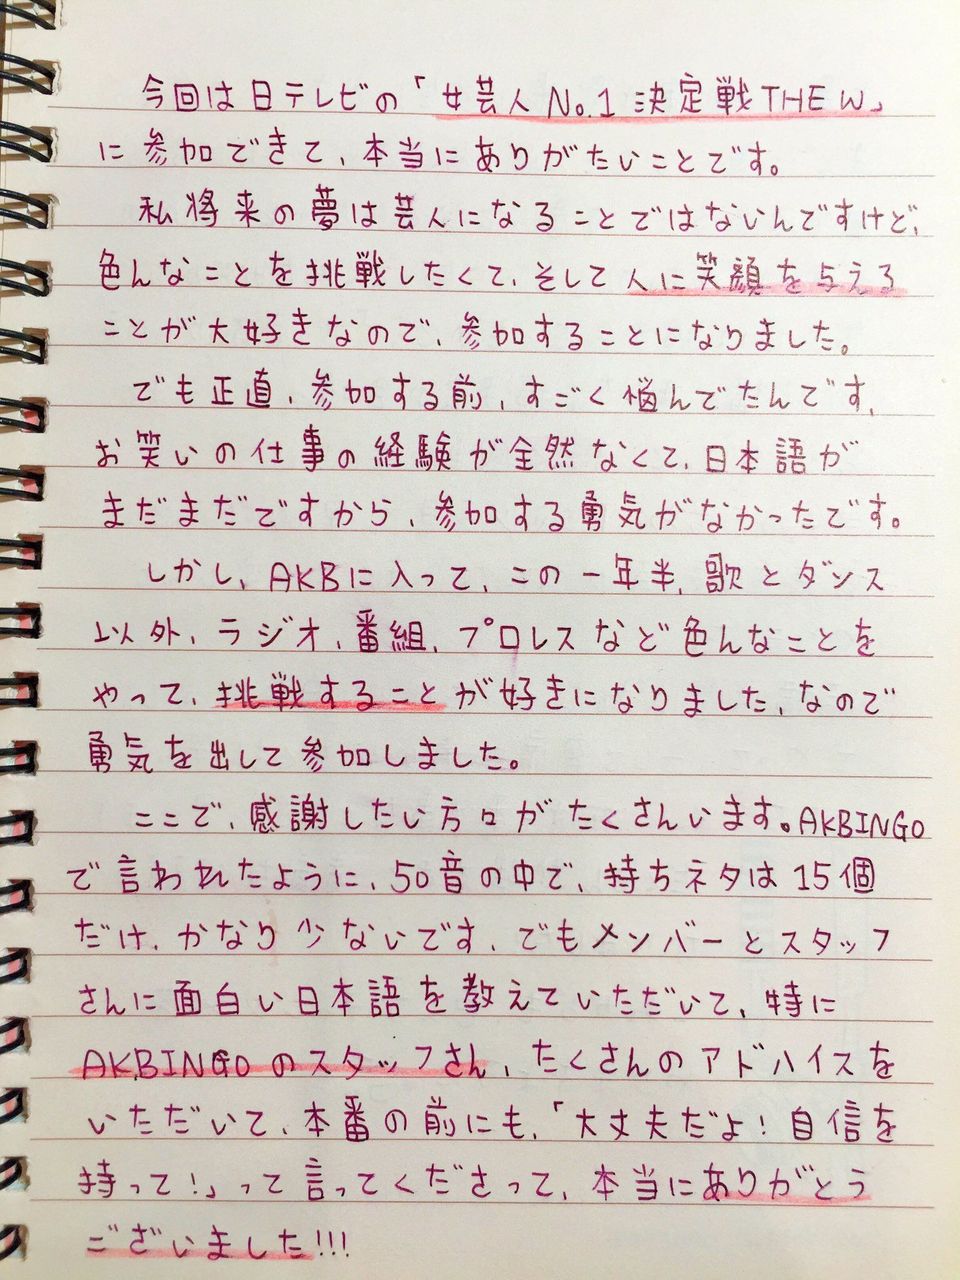 今回は日テレビの「女芸人No.1 決定戦THE W」
に参加できて、本当にありがたいことです。
私将来の夢は芸人になることではないんですけど、
色んなことを挑戦したくて、そして人に笑顔を与える
ことが大好きなので、参加することになりました。
でも正直、参加する前、すごく悩んでたんです、
お笑いの仕事の経験が全然なくて、日本語が
まだまだですから、参加する勇気がなかったです。
しかし、AKBに入って、この一年半、歌とダンス
以外、ラジオ、番組、プロレスなど色んなことを
やって、挑戦することが好きになりました、なので
勇気を出して参加しました。
ここで、感謝したい方々がたくさんいます。AKBINGO
で言われたように、50音の中で、持ちネタは15個
だけ、かなり少ないです、でもメンバーとスタッフ
さんに面白い日本語を教えていただいて、特に
AKBINGOのスタッフさん、たくさんのアドバイスを
いただいて、本番の前にも、「大丈夫だよ！自信を
持って！」って言ってくださって、本当にありがとう
ございました!!!